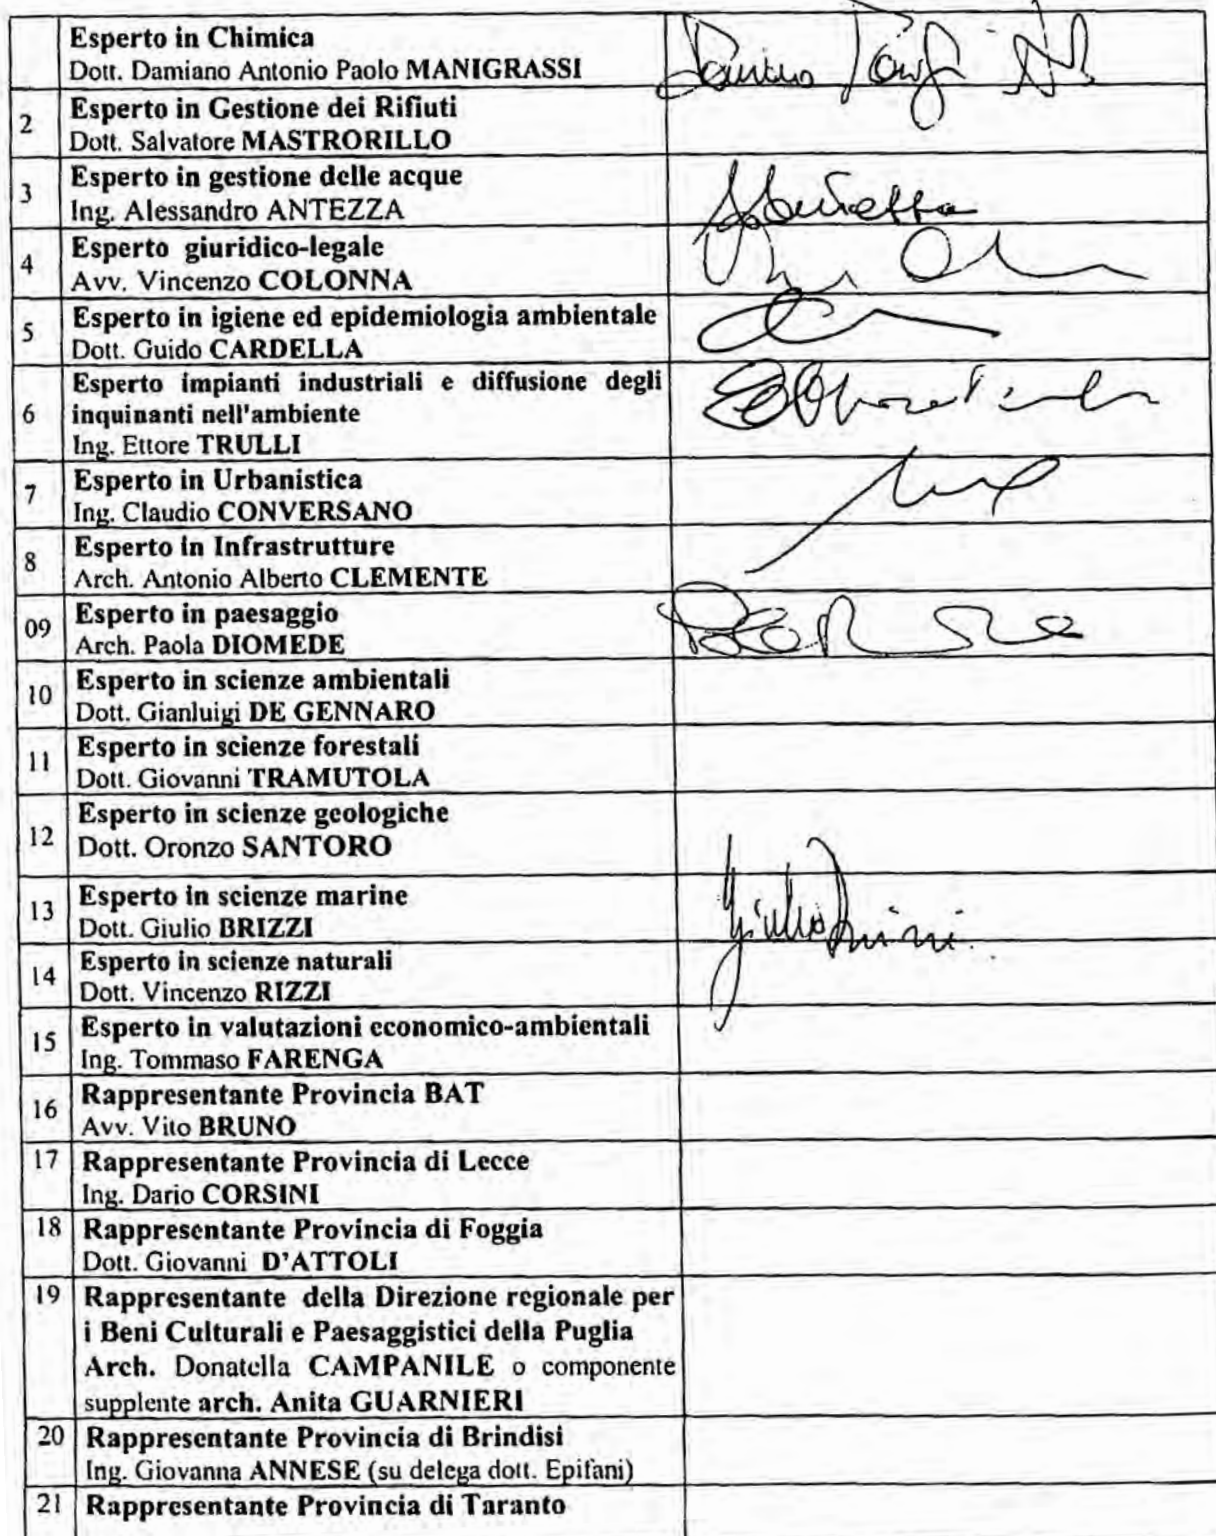 Esperto in Chimica
Dott. Damiano Antonio Paolo MANIGRASSI
2 Esperto in Gestione dei Rifiuti
Dott. Salvatore MASTRORILLO
3 Esperto in gestione delle acque
Ing. Alessandro ANTEZZA
4 Esperto giuridico-legale
Avv. Vincenzo COLONNA
5 Esperto in igiene ed epidemiologia ambientale
Dott. Guido CARDELLA
6 Esperto impianti industriali e diffusione degli
inquinanti nell'ambiente
Ing. Ettore TRULLI
7 Esperto in Urbanistica
Ing. Claudio CONVERSANO
8 Esperto in Infrastrutture
Arch. Antonio Alberto CLEMENTE
09 Esperto in paesaggio
Arch. Paola DIOMEDE
10 Esperto in scienze ambientali
Dott. Gianluigi DE GENNARO
11 Esperto in scienze forestali
Dott. Giovanni TRAMUTOLA
12 Esperto in scienze geologiche
Dott. Oronzo SANTORO
13 Esperto in scienze marine
Dott. Giulio BRIZZI
14 Esperto in scienze naturali
Dott. Vincenzo RIZZI
15 Esperto in valutazioni economico-ambientali
Ing. Tommaso FARENGA
16 Rappresentante Provincia BAT
Avv. Vito BRUNO
17 Rappresentante Provincia di Lecce
Ing. Dario CORSINI
18 Rappresentante Provincia di Foggia
Dott. Giovanni D'ATTOLI
19 Rappresentante della Direzione regionale per
i Beni Culturali e Paesaggistici della Puglia
Arch. Donatella CAMPANILE o componente
supplente arch. Anita GUARNIERI
20 Rappresentante Provincia di Brindisi
Ing. Giovanna ANNESE (su delega dott. Epifani)
21 Rappresentante Provincia di Taranto